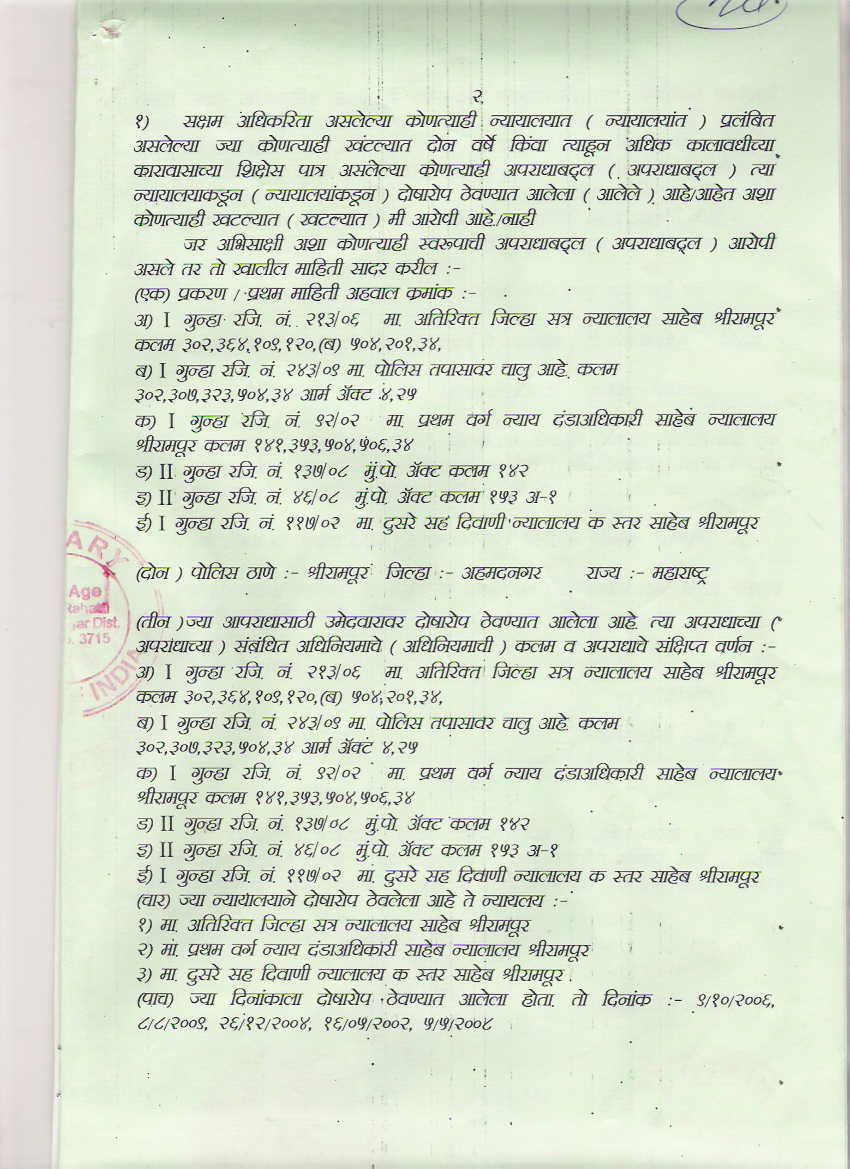 २.
१) सक्षम अधिकरिता असलेल्या कोणत्याही न्यायालयात ( न्यायालयांत ) प्रलंबित
असलेल्या ज्या कोणत्याही खंटल्यात दोन वर्षे किंवा त्याहून अधिक कालावधीच्या
कारावासाच्या शिक्षेस पात्र असलेल्या कोणत्याही अपराधाबद्दल ( अपराधाबद्दल ) त्या
न्यायालयाकडून ( न्यायालयांकडून ) दोषारोप ठेवण्यात आलेला ( आलेले ) आहे/आहेत अशा
कोणत्याही खटल्यात ( खटल्यात ) मी आरोपी आहे./नाही
जर अभिसाक्षी अशा कोणत्याही स्वरूपाची अपराधाबद्ल ( अपराधाबद्ल ) आरोपी
असले तर तो खालील माहिती सादर करील :-
(एक) प्रकरण / प्रथम माहिती अहवाल क्रमांक :-
अ) I गुन्हा रजि. नं. २१३/०६ मा. अतिरिक्त जिल्हा सत्र न्यालालय साहेब श्रीरामपूर
कलम ३०२,३६४,१०९,१२०,(ब) ५०४,२०१,३४,
ब) I गुन्हा रजि. नं. २४३/०९ मा. पोलिस तपासावर चालु आहे. कलम
३०२,३०७,३२३,५०४,३४ आर्म ॲक्ट ४,२५
क) I गुन्हा रजि. नं. ९२/०२ मा. प्रथम वर्ग न्याय दंडाअधिकारी साहेब न्यालालय
श्रीरामपूर कलम १४१,३५३,५०४,५०६,३४
ड) II गुन्हा रजि. नं. १३७/०८ मुं.पो. ॲक्ट कलम १४२
इ) II गुन्हा रजि. नं. ४६/०८ मुं.पो. ॲक्ट कलम १५३ अ-१
ई) I गुन्हा रजि. नं. ११७/०२ मा. दुसरे सह दिवाणी न्यालालय क स्तर साहेब श्रीरामपूर
(दोन ) पोलिस ठाणे :- श्रीरामपूर जिल्हा :- अहमदनगर राज्य :- महाराष्ट्र
(तीन )ज्या आपराधासाठी उमेदवारावर दोषारोप ठेवण्यात आलेला आहे. त्या अपराधाच्या (
अपराधाच्या ) संबंधित अधिनियमाचे ( अधिनियमाची ) कलम व अपराधाचे संक्षिप्त वर्णन :-
अ) I गुन्हा रजि. नं. २१३/०६ मा. अतिरिक्त जिल्हा सत्र न्यालालय साहेब श्रीरामपूर
कलम ३०२,३६४,१०९,१२०,(ब) ५०४,२०१,३४,
ब) I गुन्हा रजि. नं. २४३/०९ मा. पोलिस तपासावर चालु आहे. कलम
३०२,३०७,३२३,५०४,३४ आर्म ॲक्ट ४,२५
क) I गुन्हा रजि. नं. ९२/०२ मा. प्रथम वर्ग न्याय दंडाअधिकारी साहेब न्यालालय
श्रीरामपूर कलम १४१,३५३,५०४,५०६,३४
ड) II गुन्हा रजि. नं. १३७/०८ मुं.पो. ॲक्ट कलम १४२
इ) II गुन्हा रजि. नं. ४६/०८ मुं.पो. ॲक्ट कलम १५३ अ-१
ई) I गुन्हा रजि. नं. ११७/०२ मा. दुसरे सह दिवाणी न्यालालय क स्तर साहेब श्रीरामपूर
(चार) ज्या न्यायालयाने दोषारोप ठेवलेला आहे ते न्यायलय :-
१) मा. अतिरिक्त जिल्हा सत्र न्यालालय साहेब श्रीरामपूर
२) मा. प्रथम वर्ग न्याय दंडाअधिकारी साहेब न्यालालय श्रीरामपूर
३) मा. दुसरे सह दिवाणी न्यालालय क स्तर साहेब श्रीरामपूर .
(पाच) ज्या दिनांकाला दोषारोप ठेवण्यात आलेला होता. तो दिनांक :- ९/१०/२००६,
८/८/२००९, २६/१२/२००४, १६/०५/२००२, ५/५/२००८
ARY
Age
Rahata
ar Dist.
3715
INDIA